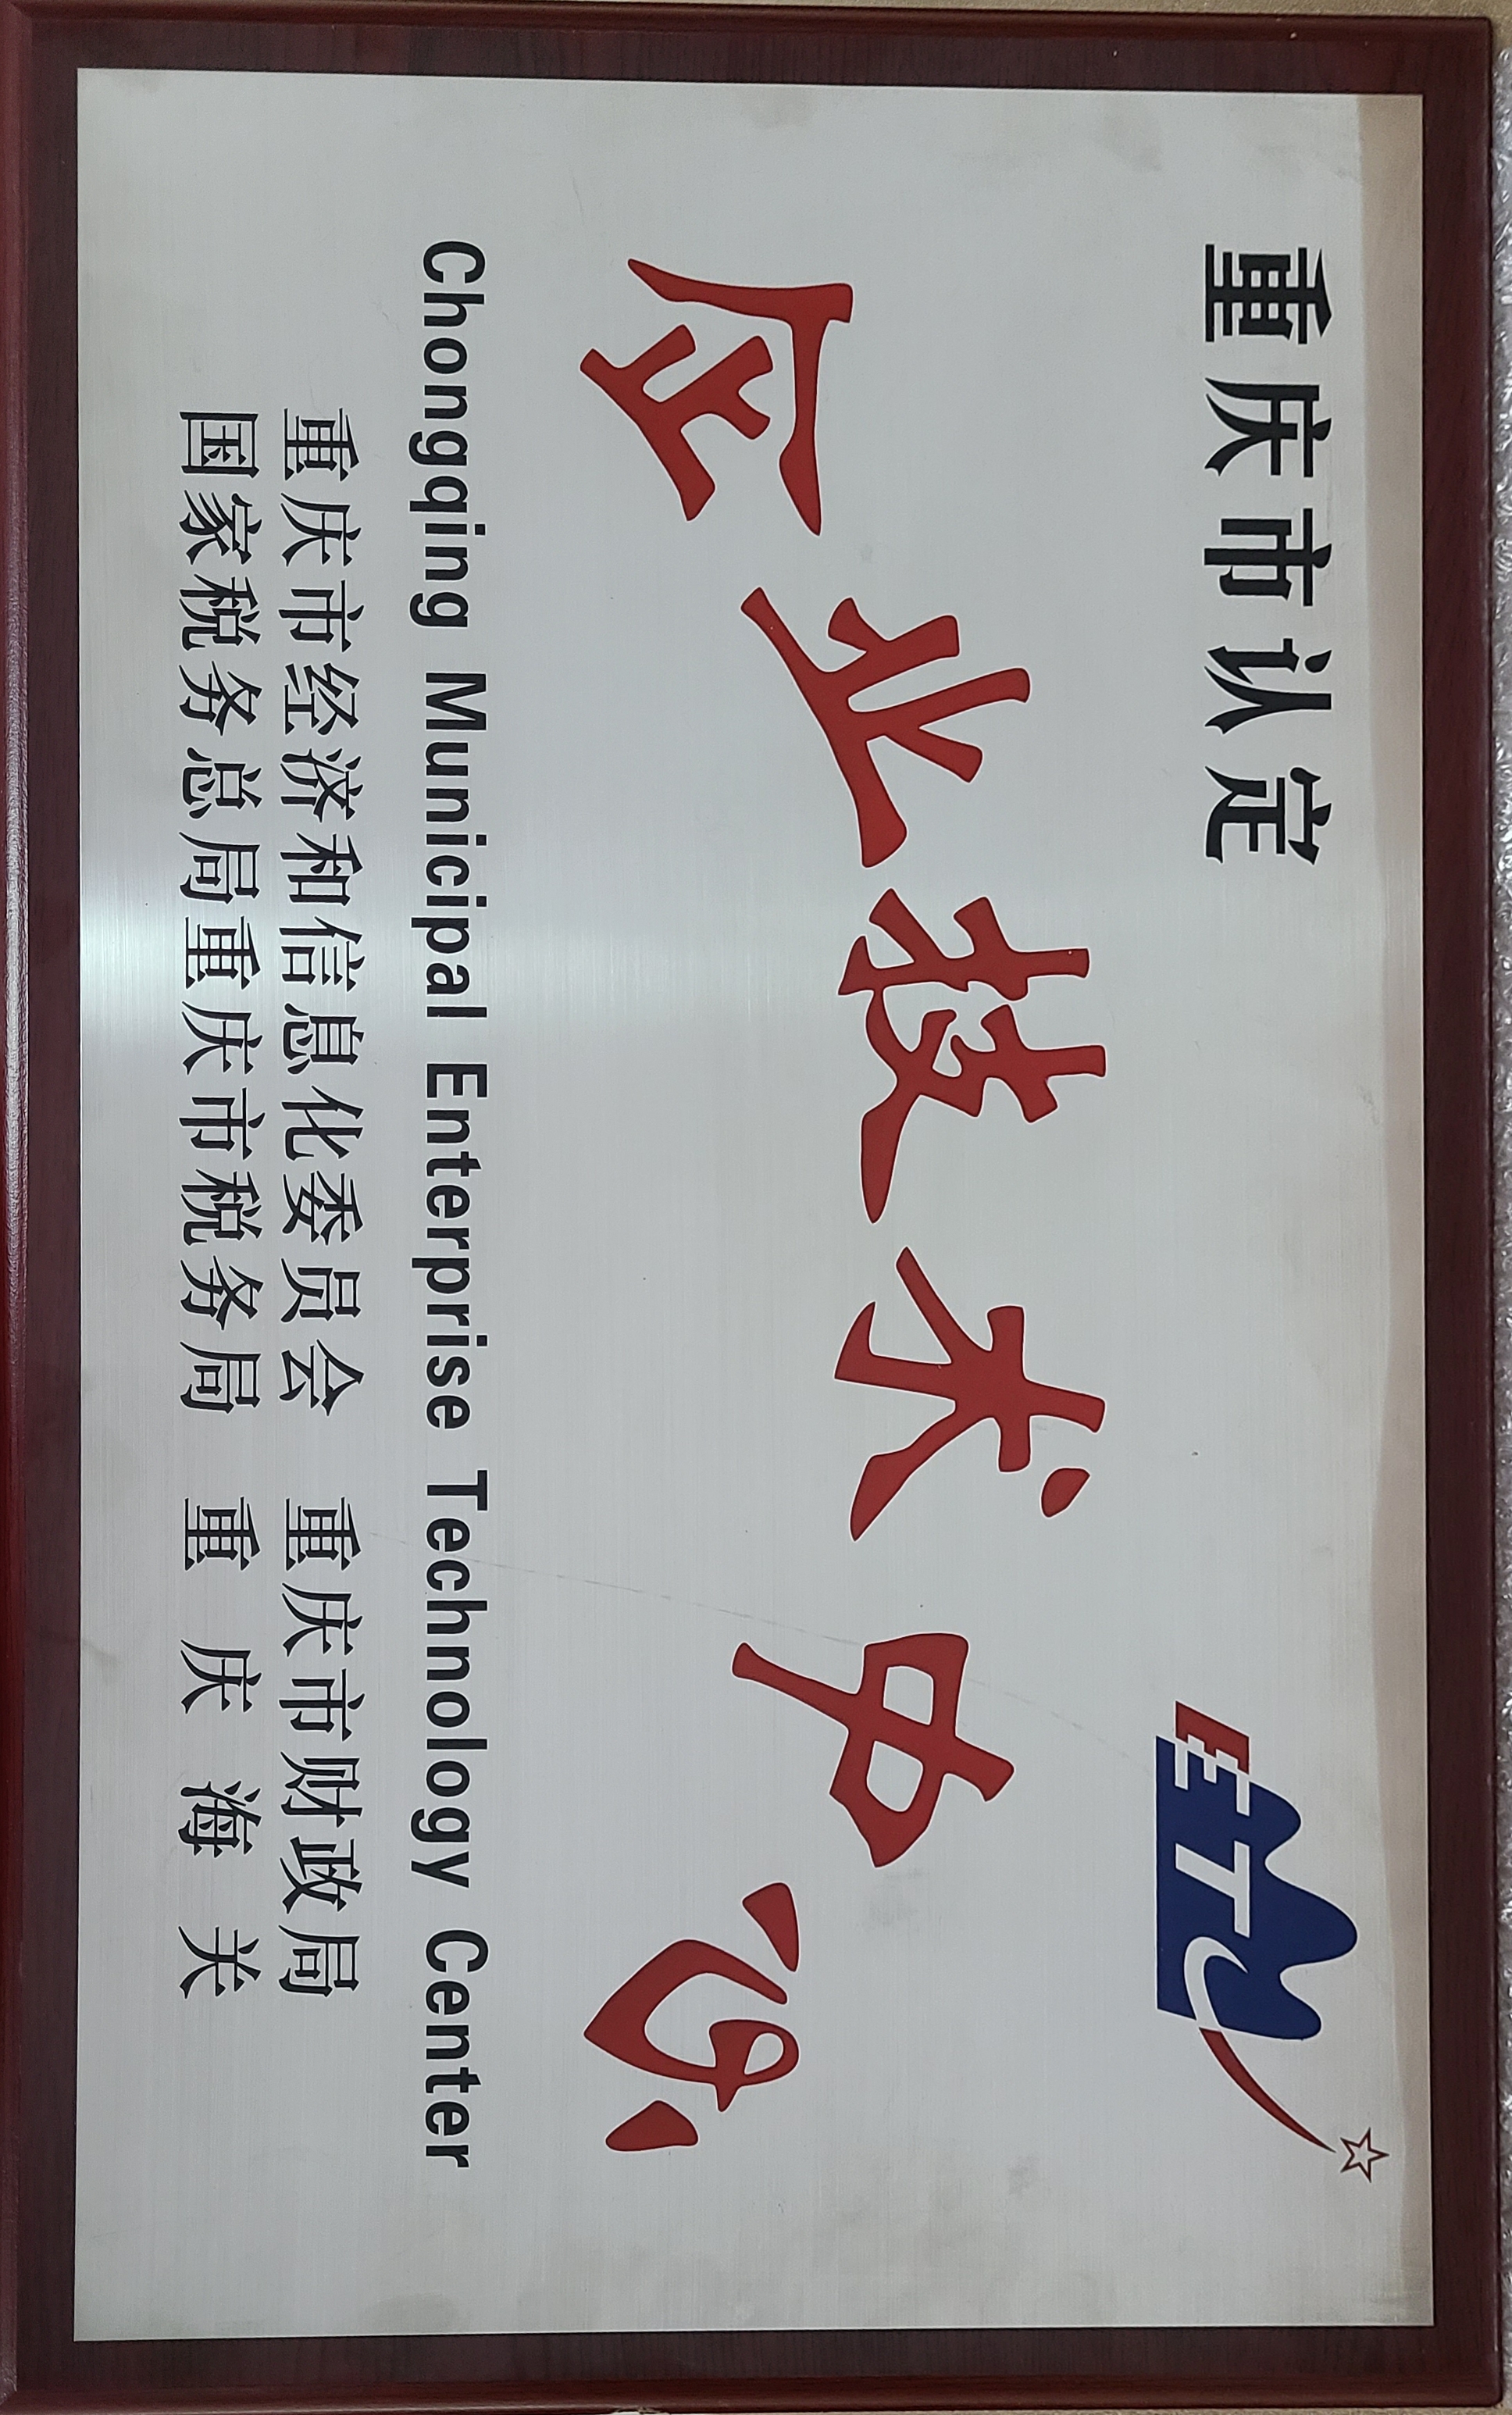 重庆市认定
ETC
企业技术中心
Chongqing Municipal Enterprise Technology Center
重庆市经济和信息化委员会 重庆市财政局
国家税务总局重庆市税务局 重庆海关